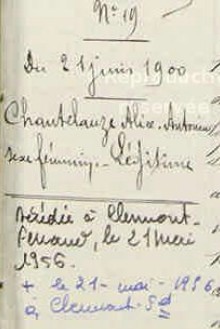 N° 19
Du 21 juin 1900
Chantelauze Alice-Antonine
sexe féminin - Légitime
décédée à Clermont-
Ferrand, le 21 mai
1956.
+ le 21 - mai - 1956
à Clermont-Fd